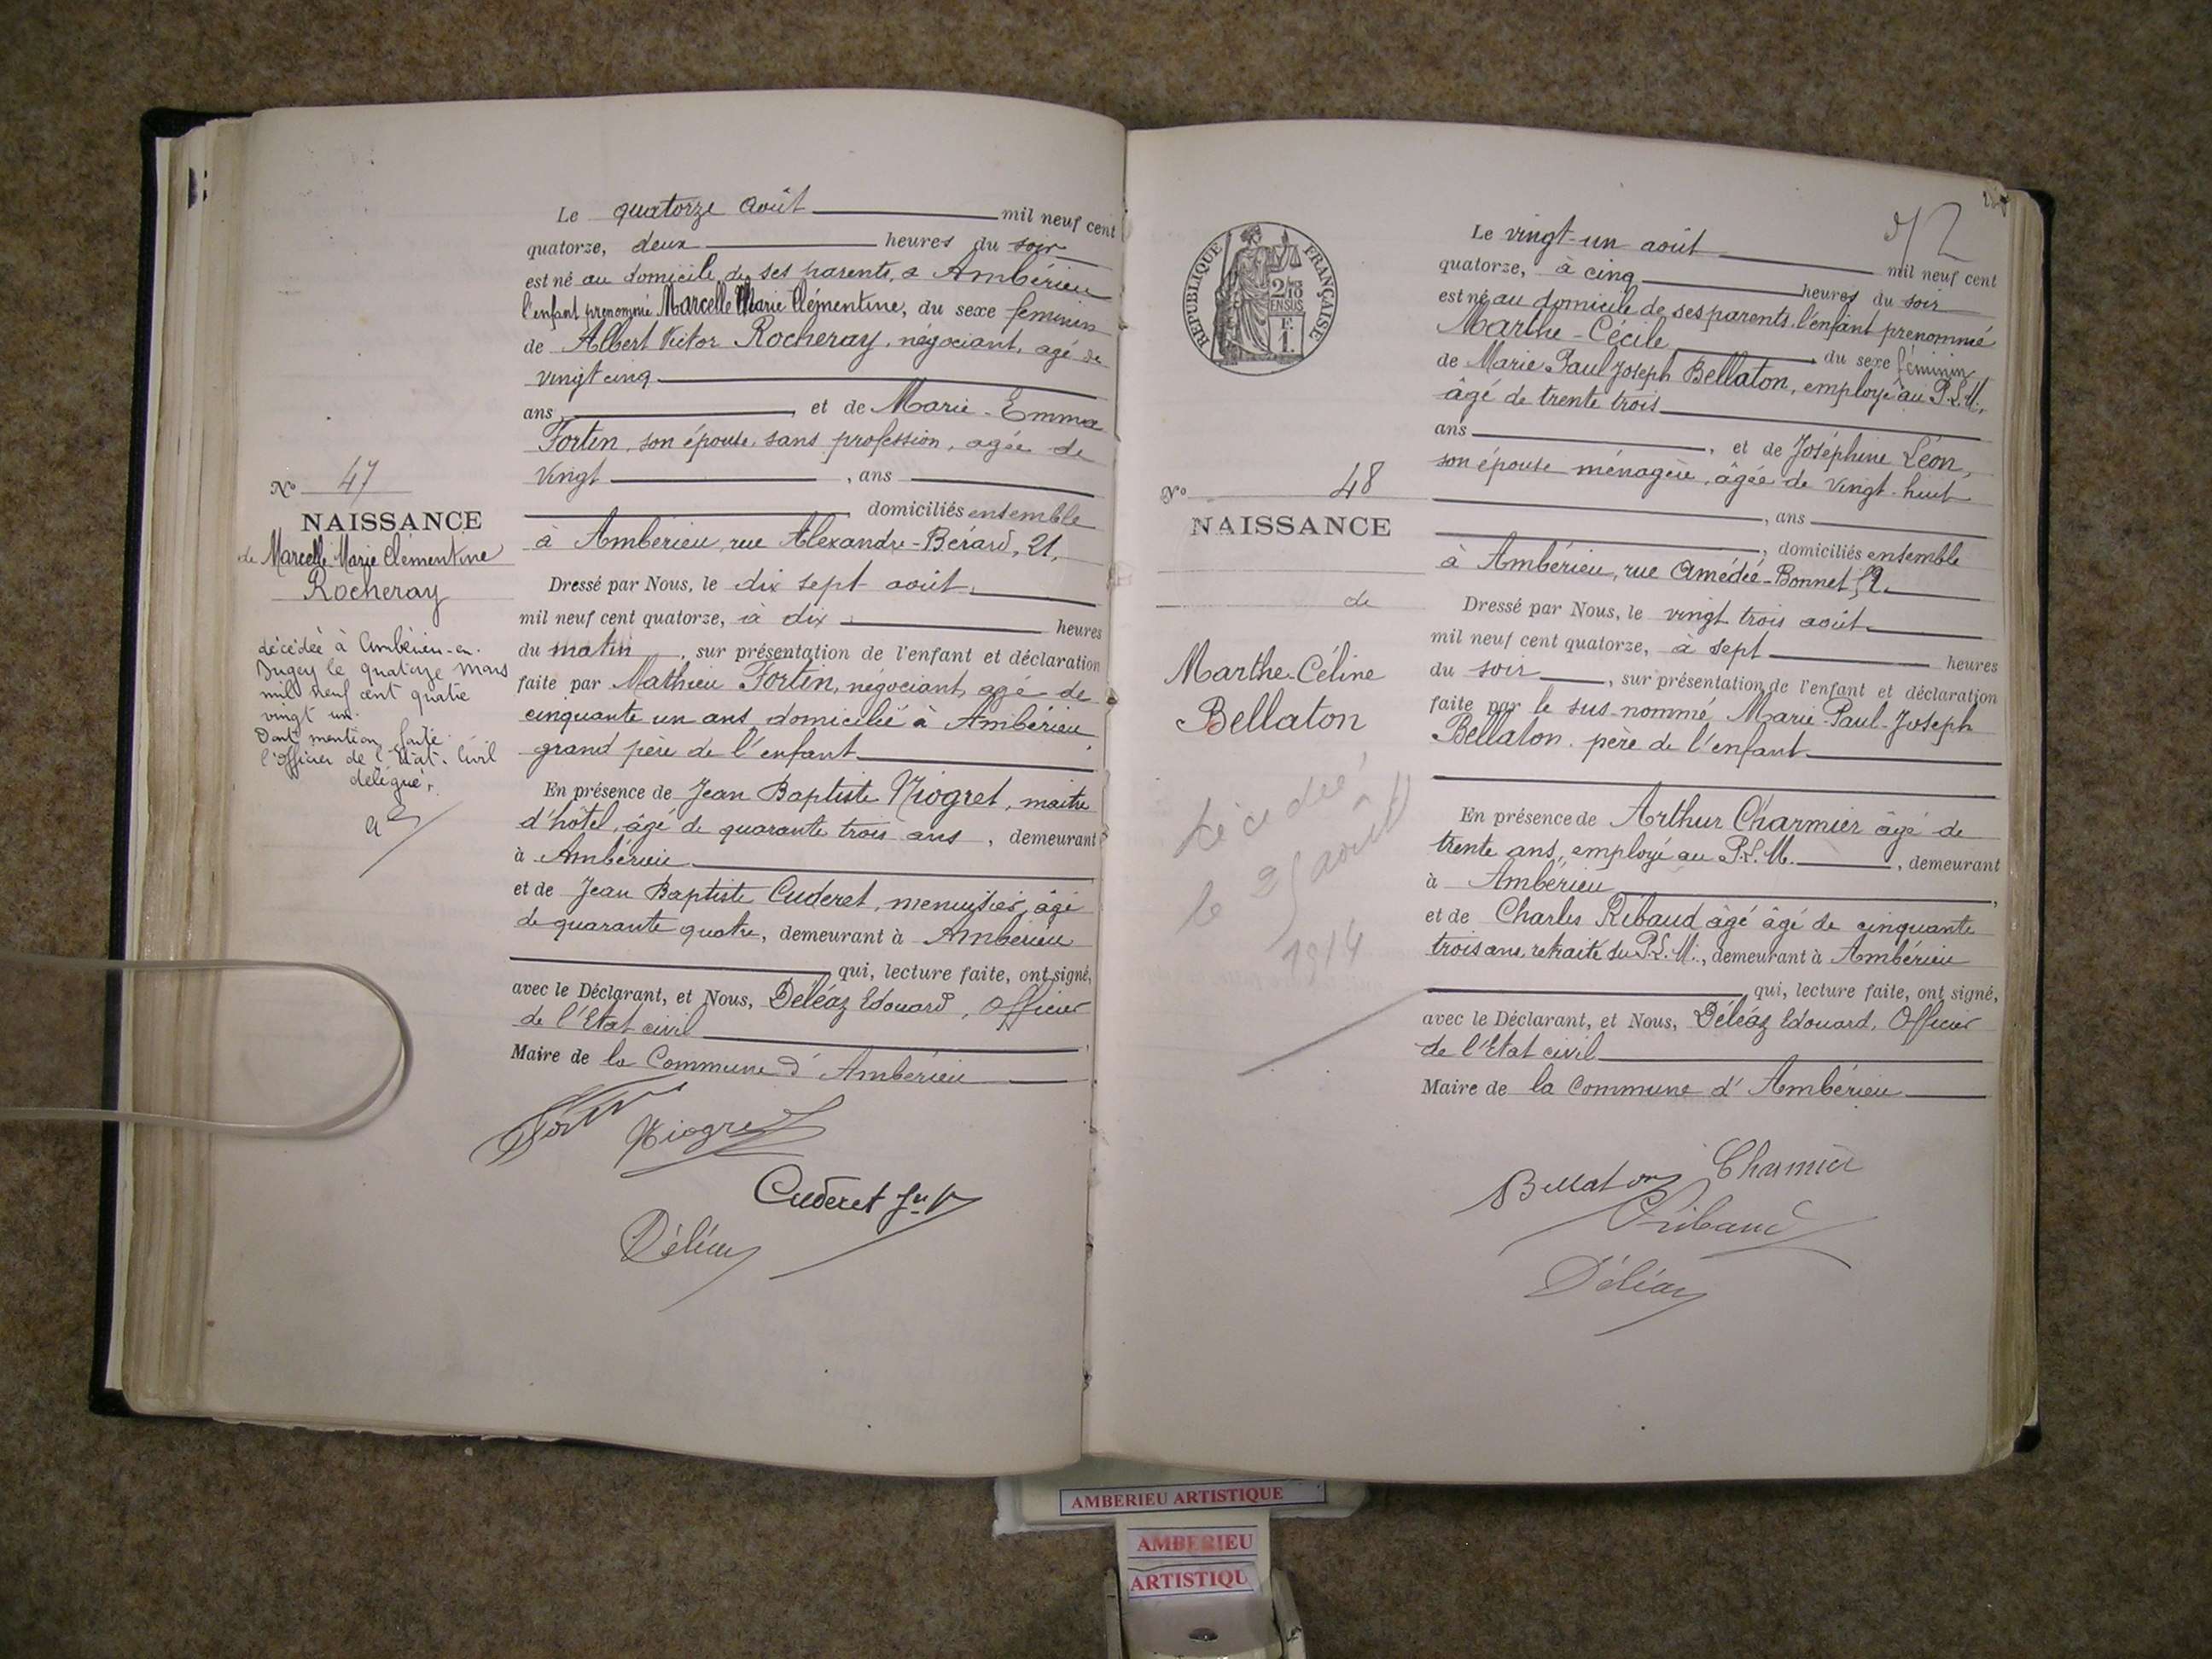 Le quatorze août mil neuf cent
quatorze, deux heures du soir
est né au domicile de ses parents, à Ambérieu
l'enfant prénommé Marcelle Marie Clémentine, du sexe féminin
de Albert Victor Rocheray, négociant, agé de
vingt cinq
ans, et de Marie-Emma
Fortin, son épouse, sans profession, agée de
vingt, ans
domiciliés ensemble
à Ambérieu, rue Alexandre-Bérard, 21,
Dressé par Nous, le dix sept août,
mil neuf cent quatorze, à dix heures
du matin, sur présentation de l'enfant et déclaration
faite par Mathieu Fortin, négociant, agé de
cinquante un ans, domicilié à Ambérieu,
grand père de l'enfant
En présence de Jean Baptiste Niogret, maitre
d'hôtel, âgé de quarante trois ans, demeurant
à Ambérieu
et de Jean Baptiste Cuderet, menuisier, âgé
de quarante quatre, demeurant à Ambérieu
qui, lecture faite, ont signé,
avec le Déclarant, et Nous, Déléaz Edouard, Officier
de l'Etat civil
Maire de la Commune d'Ambérieu
Niogret
Cuderet
Déléaz
No 47
NAISSANCE
de Marcelle Marie Clémentine
Rocheray
décédée à Ambérieu-en-
Bugey le quatorze mars
mil neuf cent quatre
vingt un.
Dont mention faite.
l'Officier de l'Etat-Civil
délégué,
RÉPUBLIQUE FRANÇAISE
2/10
EN SUS
F.
1.
Le vingt-un août mil neuf cent
quatorze, à cinq heures du soir
est né au domicile de ses parents, l'enfant prénommé
Marthe-Cécile du sexe féminin
de Marie Paul Joseph Bellaton, employé au P.L.M.,
âgé de trente trois
ans, et de Joséphine Léon,
son épouse ménagère, âgée de vingt-huit
, ans
, domiciliés ensemble
à Ambérieu, rue Amédée-Bonnet,
Dressé par Nous, le vingt trois août
mil neuf cent quatorze, à sept heures
du soir, sur présentation de l'enfant et déclaration
faite par le sus-nommé Marie-Paul-Joseph
Bellaton, père de l'enfant
En présence de Arthur Charmier âgé de
trente ans, employé au P.L.M., demeurant
à Ambérieu
et de Charles Ribaud âgé âgé de cinquante
trois ans, retraité du P.L.M., demeurant à Ambérieu
qui, lecture faite, ont signé,
avec le Déclarant, et Nous, Déléaz Edouard, Officier
de l'Etat civil
Maire de la Commune d'Ambérieu
Bellaton
Charmier
Ribaud
Déléaz
No 48
NAISSANCE
de
Marthe-Céline
Bellaton
décédée
le 25 août
1914
AMBERIEU ARTISTIQUE
AMBERIEU
ARTISTIQU